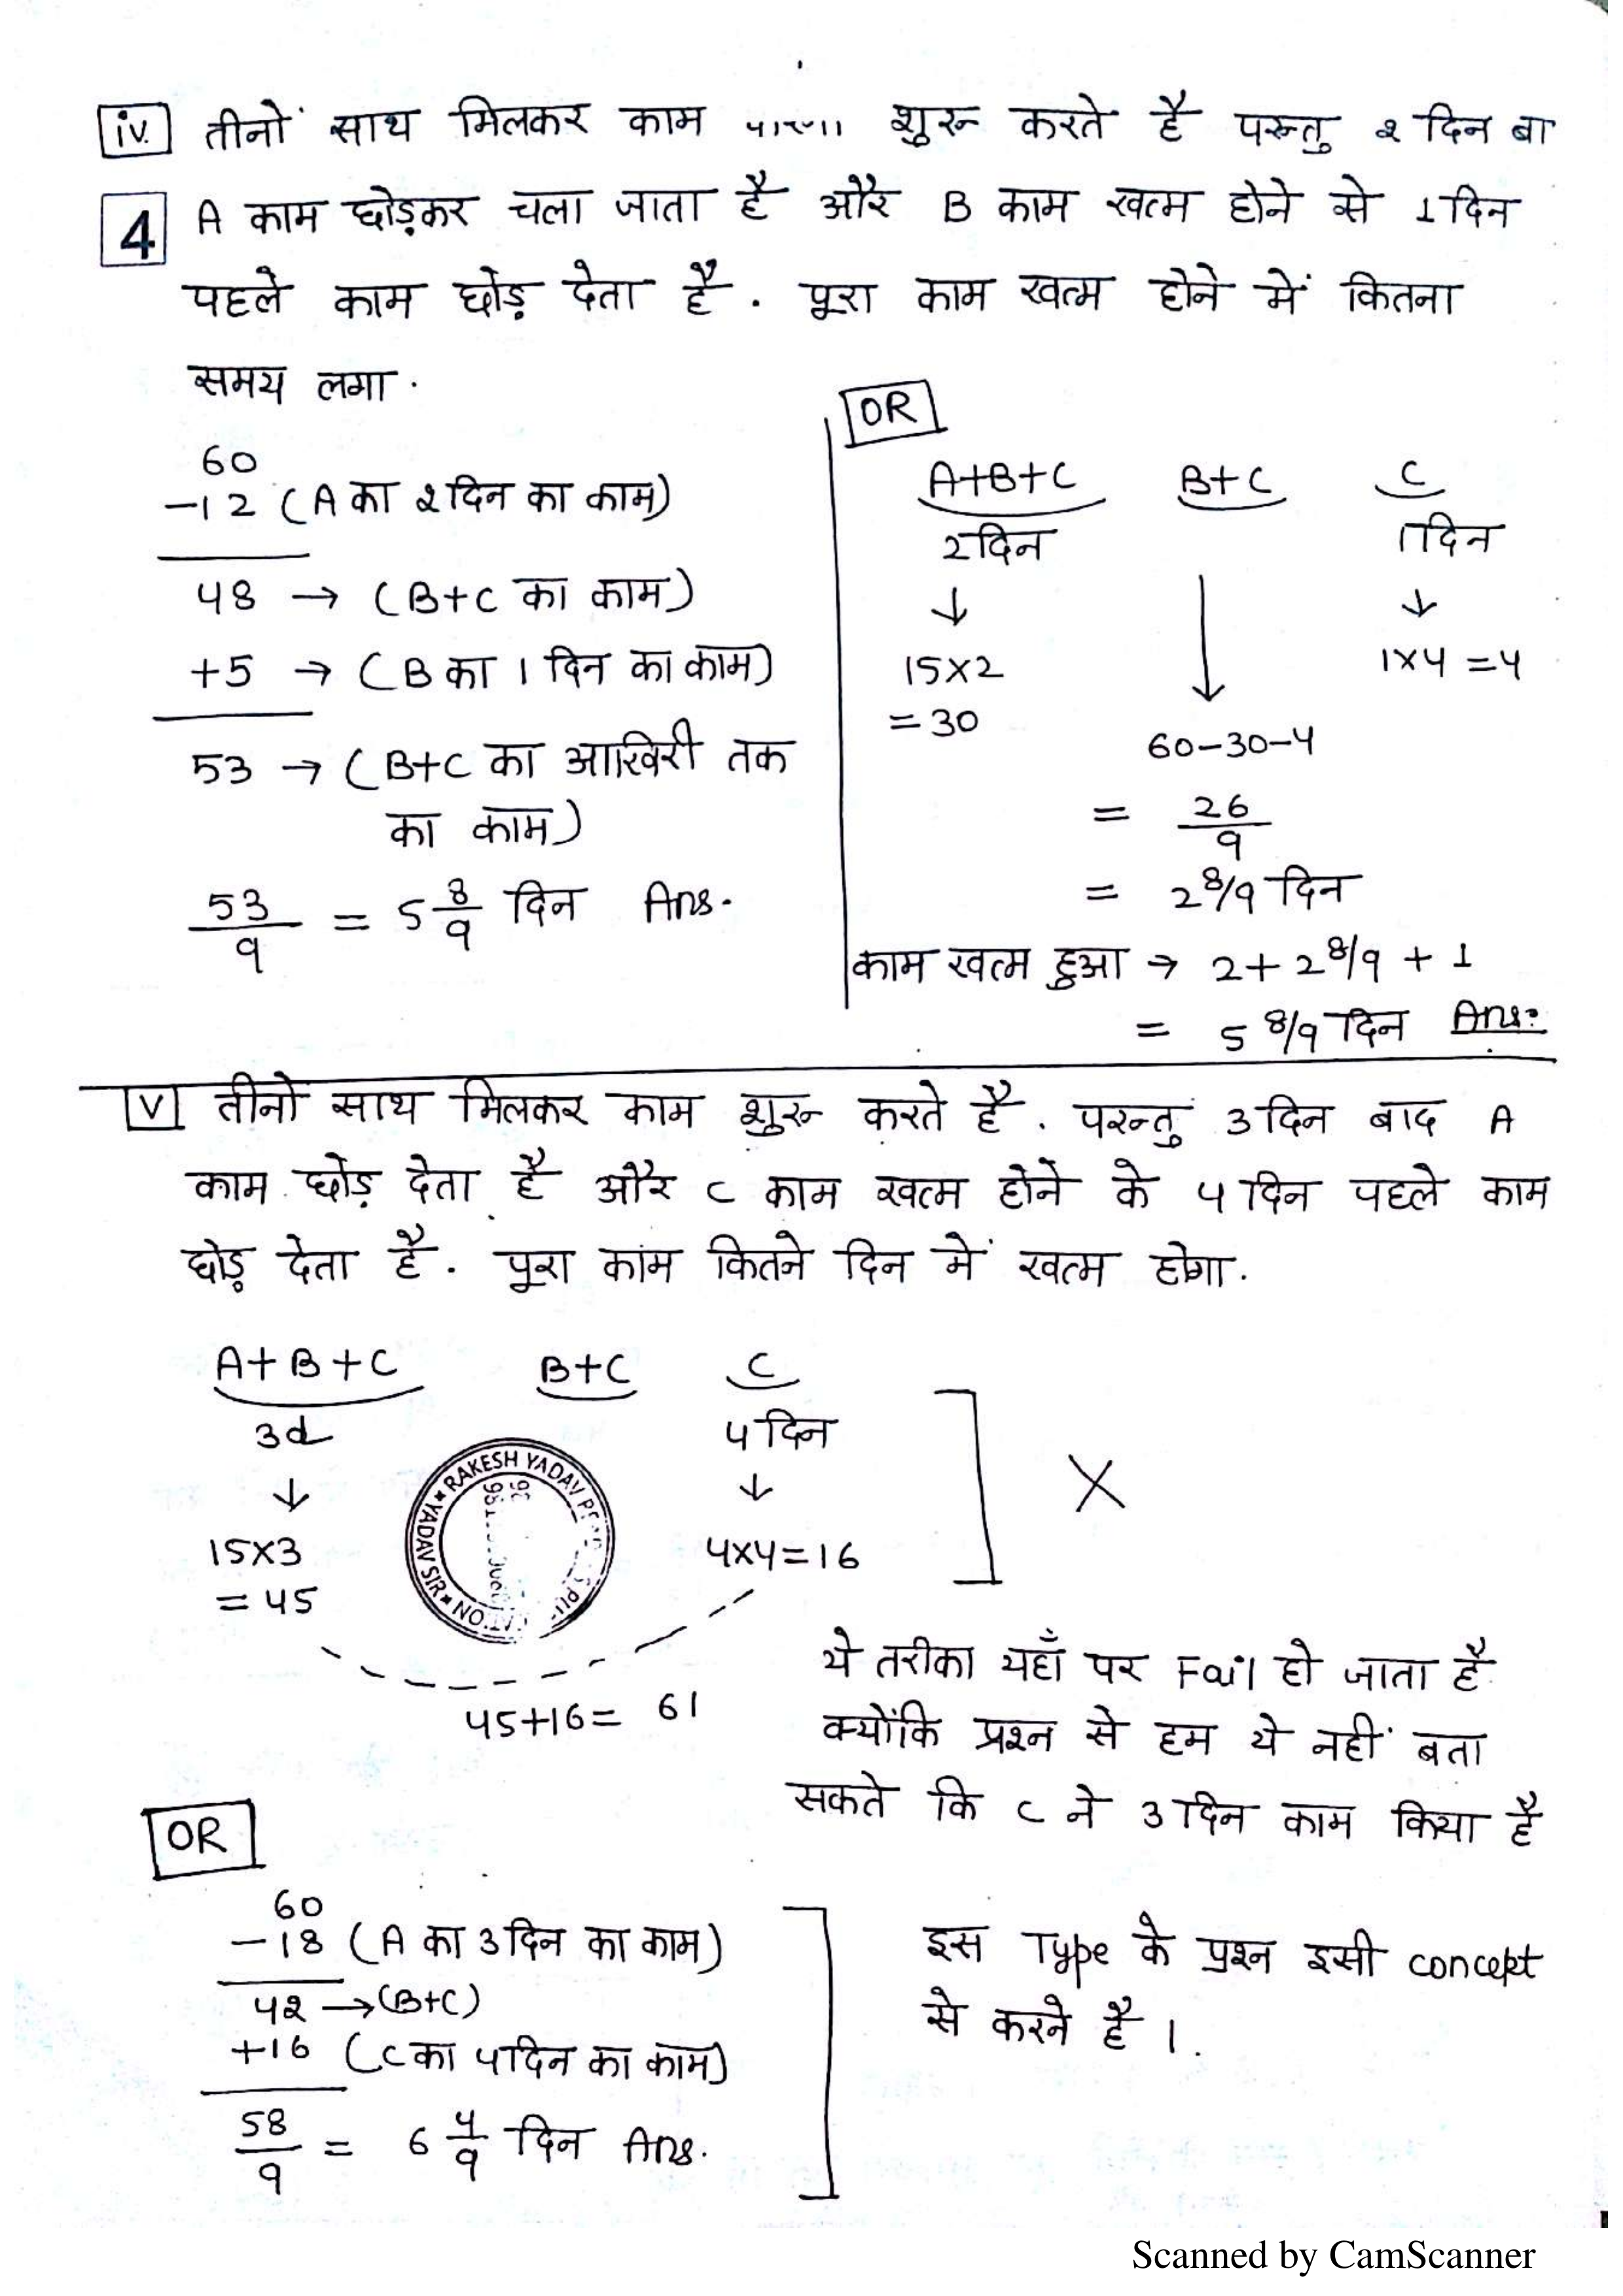 iv. तीनों साथ मिलकर काम शुरू करते है परन्तु 2 दिन बा
4 A काम छोड़कर चला जाता है और B काम खत्म होने से 1 दिन
पहले काम छोड़ देता है. पूरा काम खत्म होने में कितना
समय लगा.
60
-12 (A का 2 दिन का काम)
48 → (B+C का काम)
+5 → (B का 1 दिन का काम)
53 → (B+C का आखिरी तक
का काम)
53/9 = 5 8/9 दिन Ans.
OR
A+B+C B+C C
2 दिन 1 दिन
↓ ↓ ↓
15×2 1×4 = 4
= 30
60-30-4
= 26/9
= 2 8/9 दिन
काम खत्म हुआ → 2+2 8/9 + 1
= 5 8/9 दिन Ans:
v तीनो साथ मिलकर काम शुरू करते है. परन्तु 3 दिन बाद A
काम छोड़ देता है और C काम खत्म होने के 4 दिन पहले काम
छोड़ देता है. पूरा काम कितने दिन में खत्म होगा.
A+B+C B+C C
3d 4 दिन
↓ ↓
15×3 4×4=16
= 45
×
RAKESH YADAV
YADAV SIR
45+16= 61
ये तरीका यहाँ पर Fail हो जाता है
क्योंकि प्रश्न से हम ये नहीं बता
सकते कि C ने 3 दिन काम किया है
OR
60
-18 (A का 3 दिन का काम)
42 →(B+C)
+16 (C का 4 दिन का काम)
58/9 = 6 4/9 दिन Ans.
इस Type के प्रश्न इसी concept
से करने है ।.
Scanned by CamScanner